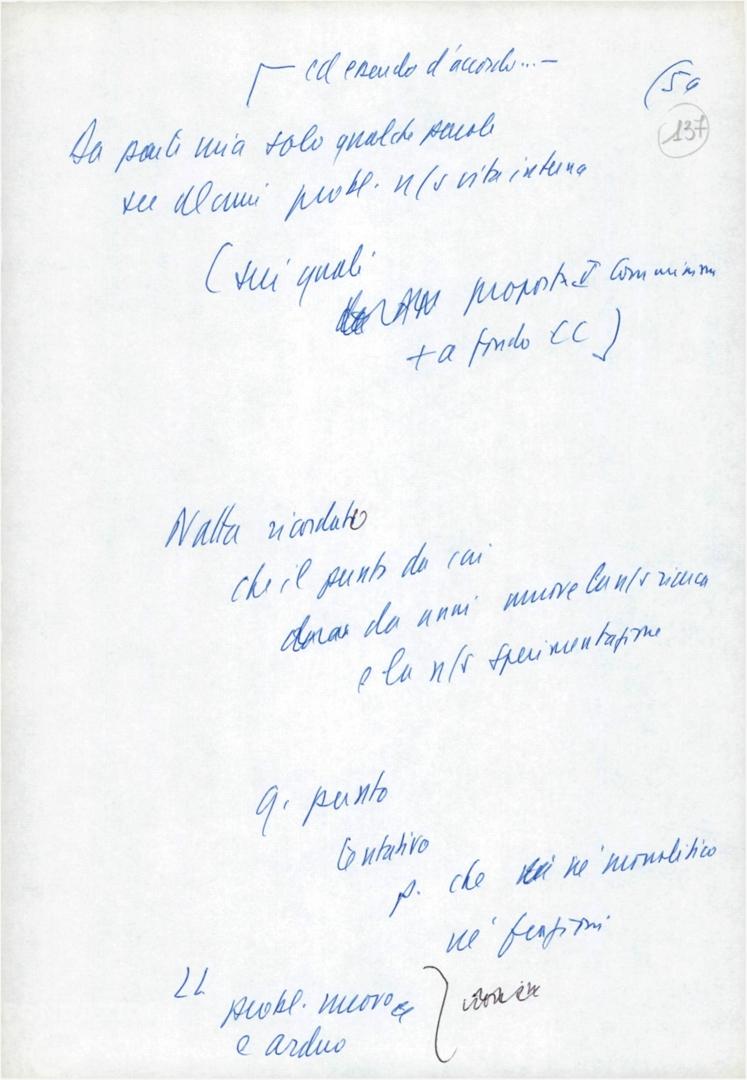 ed essendo d'accordo...—
(5a
137
Da parte mia solo qualche parola
su alcuni probl. n/s vita interna
(sui quali
proposta I Commissione
+ a fondo CC)
Natta ricordato
che il punto da cui
da anni muove la n/s ricerca
e la n/s sperimentazione
q. punto
tentativo
p. che né monolitico
né frazioni
probl. nuovo
e arduo